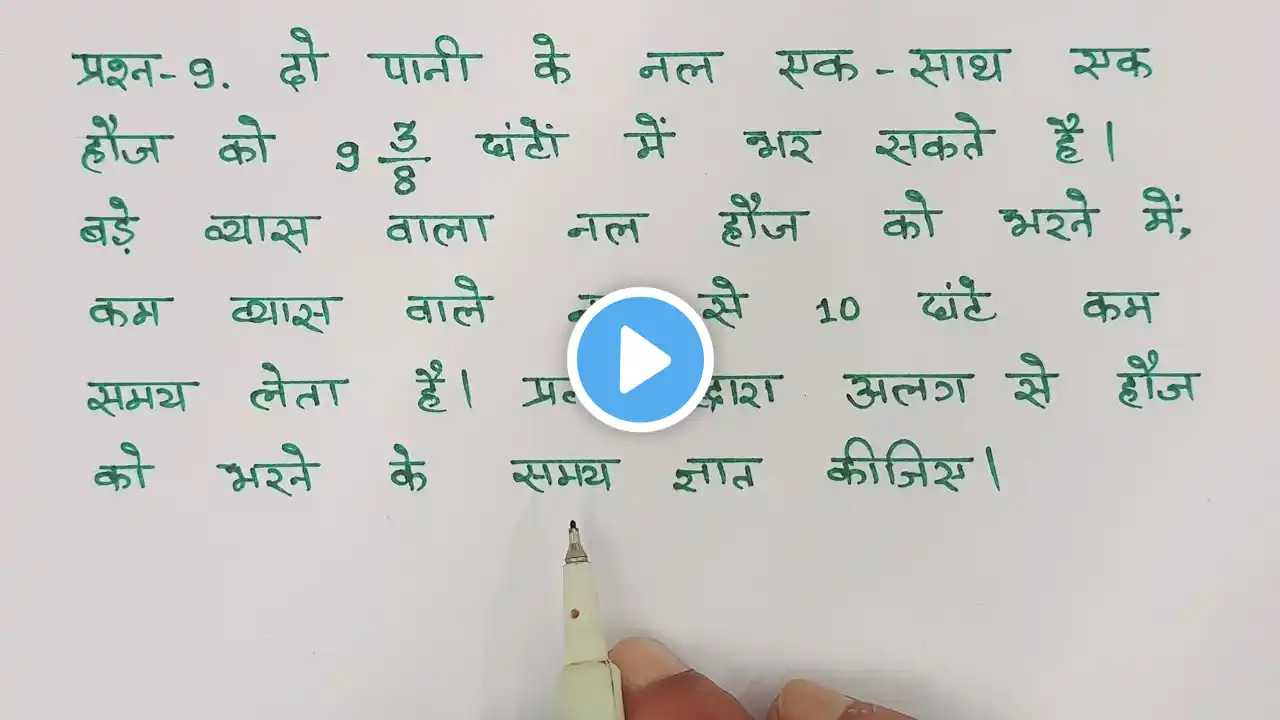 प्रश्न-9. दो पानी के नल एक-साथ एक
हौज को 9 3/8 घंटों में भर सकते है।
बड़े व्यास वाला नल हौज को भरने में,
कम व्यास वाले से 10 घंटे कम
समय लेता है। द्वारा अलग से हौज
को भरने के समय ज्ञात कीजिए।